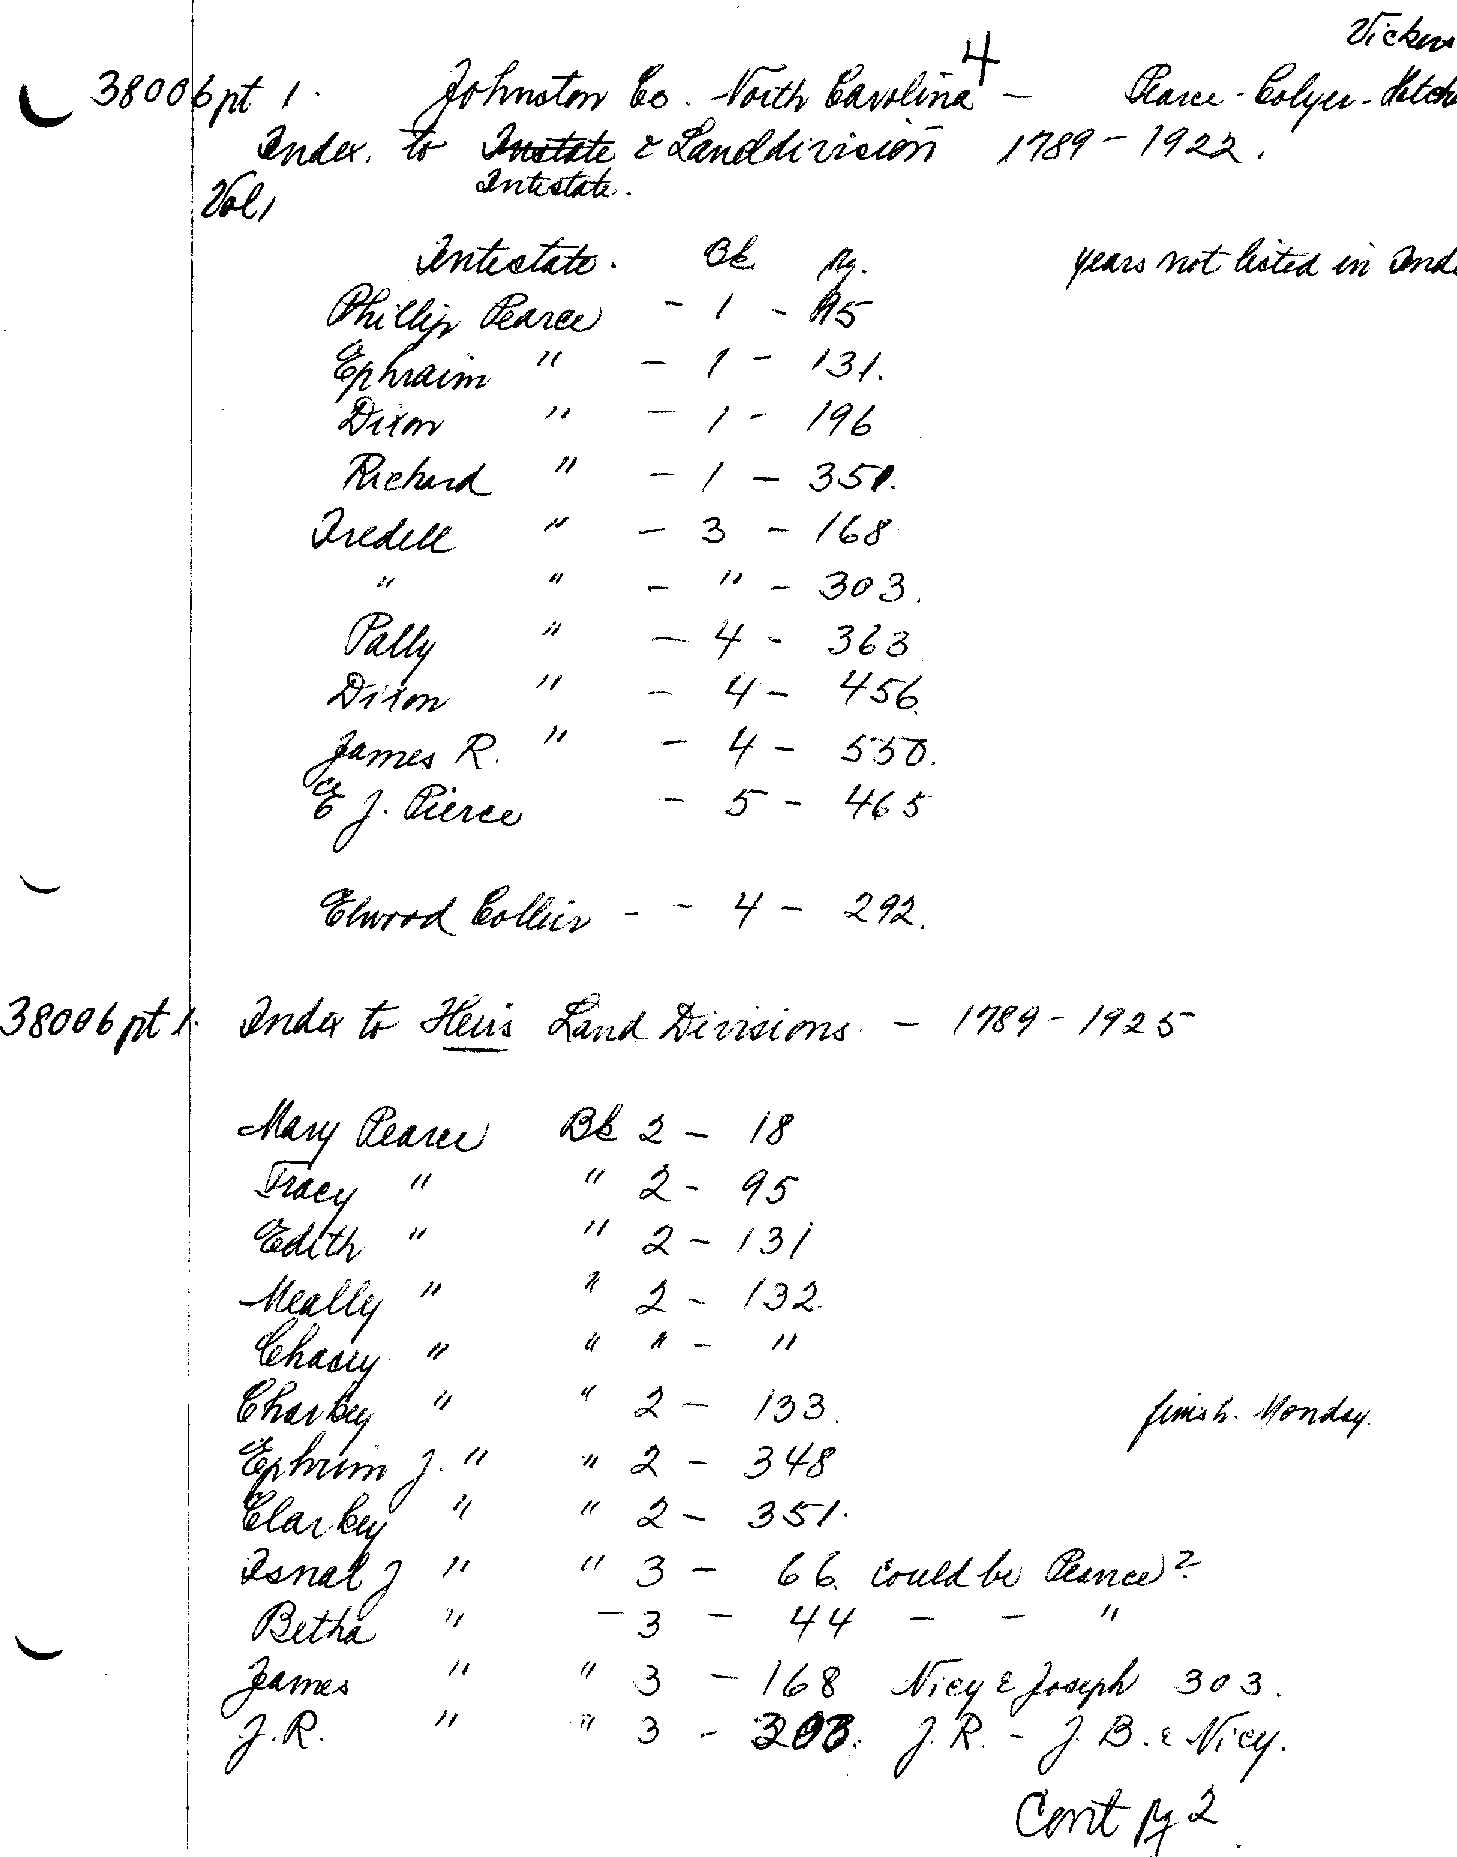 Vickers
4
38006 pt 1. Johnston Co. North Carolina - Pearce - Colyer - Hatch
Index. to Instate & Landdivision 1789 - 1922.
Intestate.
Vol 1
Intestate. Bk pg. years not listed in Inde
Phillip Pearce - 1 - 95
Ephraim " - 1 - 131.
Dixon " - 1 - 196
Richard " - 1 - 351.
Iredell " - 3 - 168
" " - " - 303.
Pally " - 4 - 363
Dixon " - 4 - 456.
James R. " - 4 - 550.
E J. Pierce - 5 - 465
Elwood Collier - - 4 - 292.
38006 pt 1. Index to Heirs Land Divisions - 1789 - 1925
Mary Pearce Bk 2 - 18
Tracy " " 2 - 95
Edith " " 2 - 131
Meally " " 2 - 132.
Chacey " " " - "
Charkey " " 2 - 133. finish. Monday.
Ephrim J. " " 2 - 348
Clarkey " " 2 - 351.
Isnal J " " 3 - 66. could be Pearce?
Betha " - 3 - 44 - - "
James " " 3 - 168 Nicy & Joseph 303.
J.R. " " 3 - 303. J. R. - J. B. & Nicy.
Cont pg 2